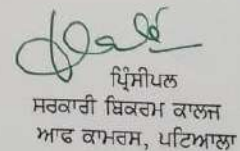 ਪ੍ਰਿੰਸੀਪਲ
ਸਰਕਾਰੀ ਬਿਕਰਮ ਕਾਲਜ
ਆਫ ਕਾਮਰਸ, ਪਟਿਆਲਾ